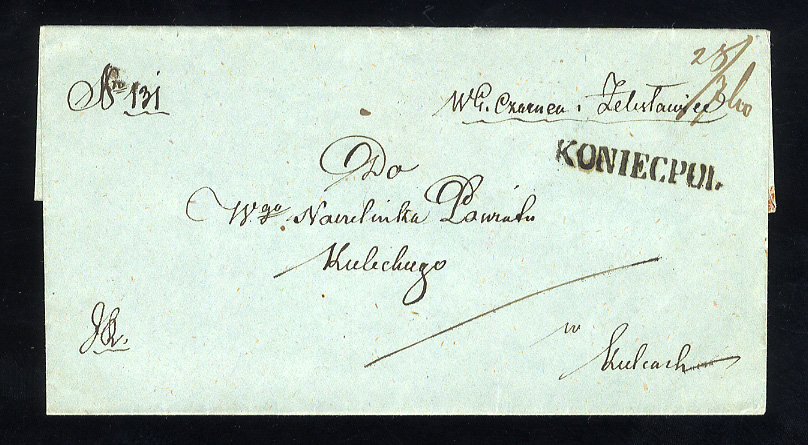 Nro 131
WG. Czarnca i Żelisławice
28/3 60
KONIECPOL
Do
Wgo Naczelnika Powiatu
Kieleckiego
w
Kielcach